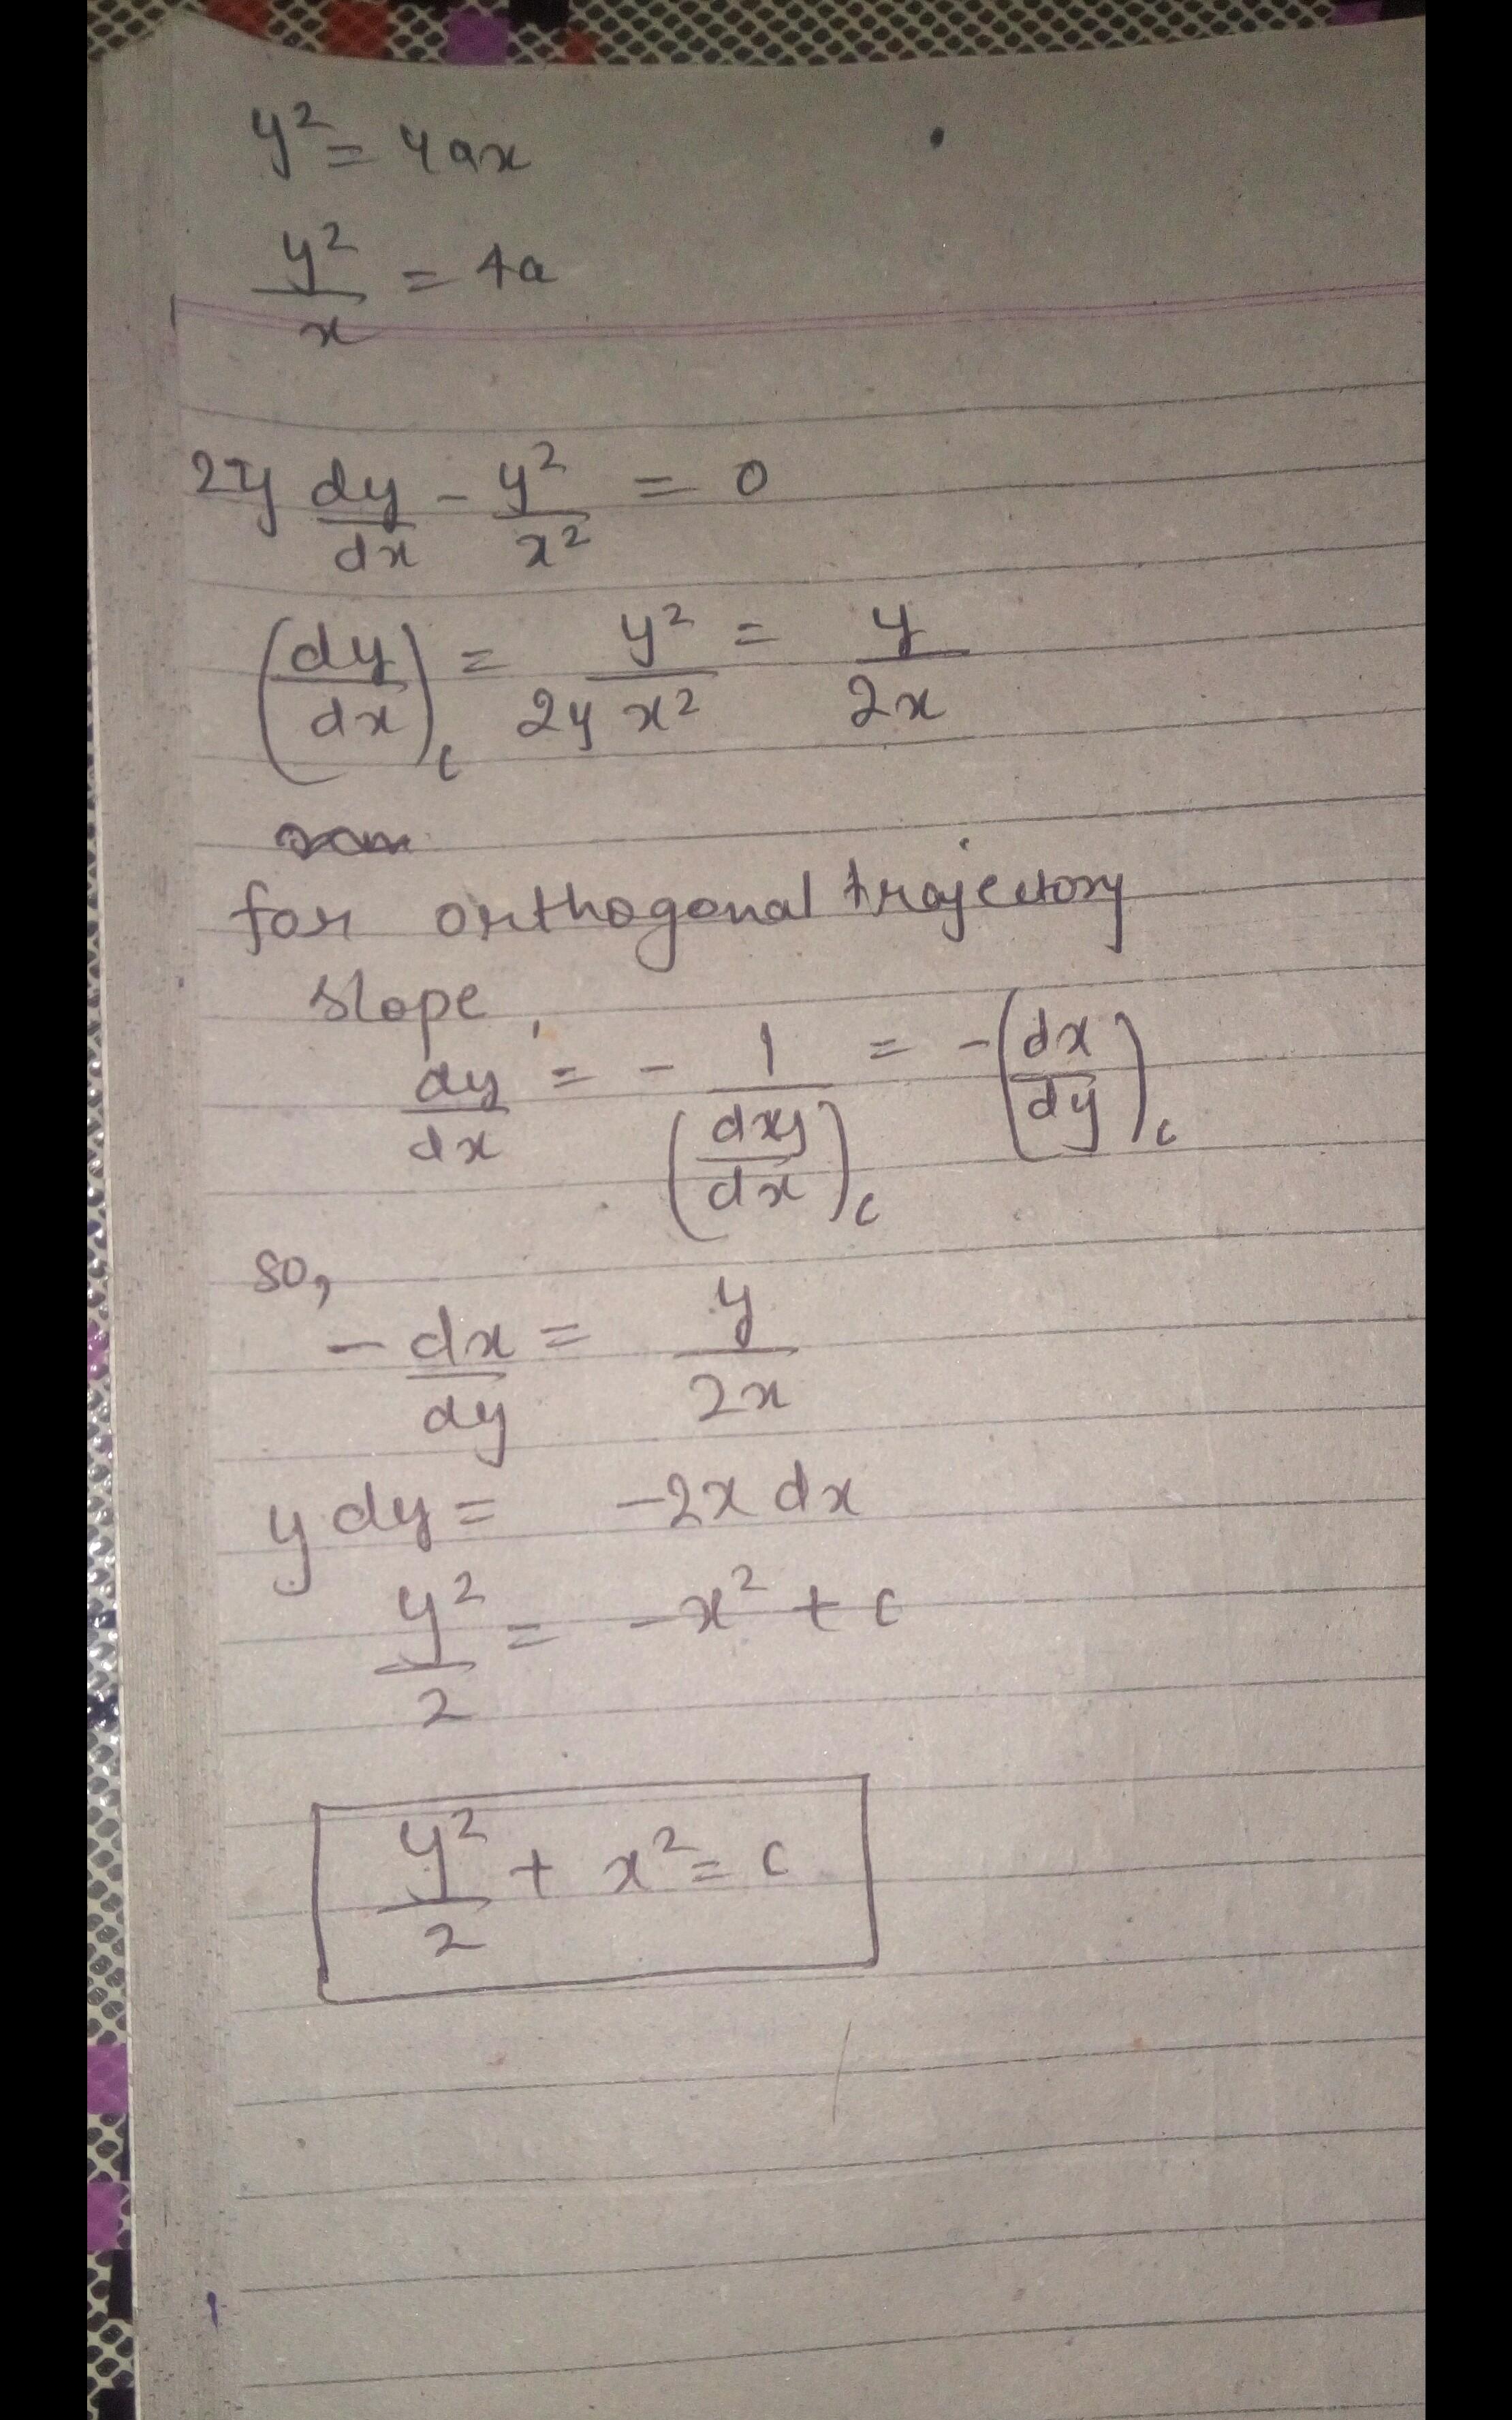 y² = 4ax
y²/x = 4a
2y dy/dx - y²/x² = 0
(dy/dx)c = y²/2y x² = y/2x
for orthogonal trajectory
slope,
dy/dx = - 1/(dy/dx)c = -(dx/dy)c
so,
- dx/dy = y/2x
y dy = -2x dx
y²/2 = -x² + c
y²/2 + x² = c